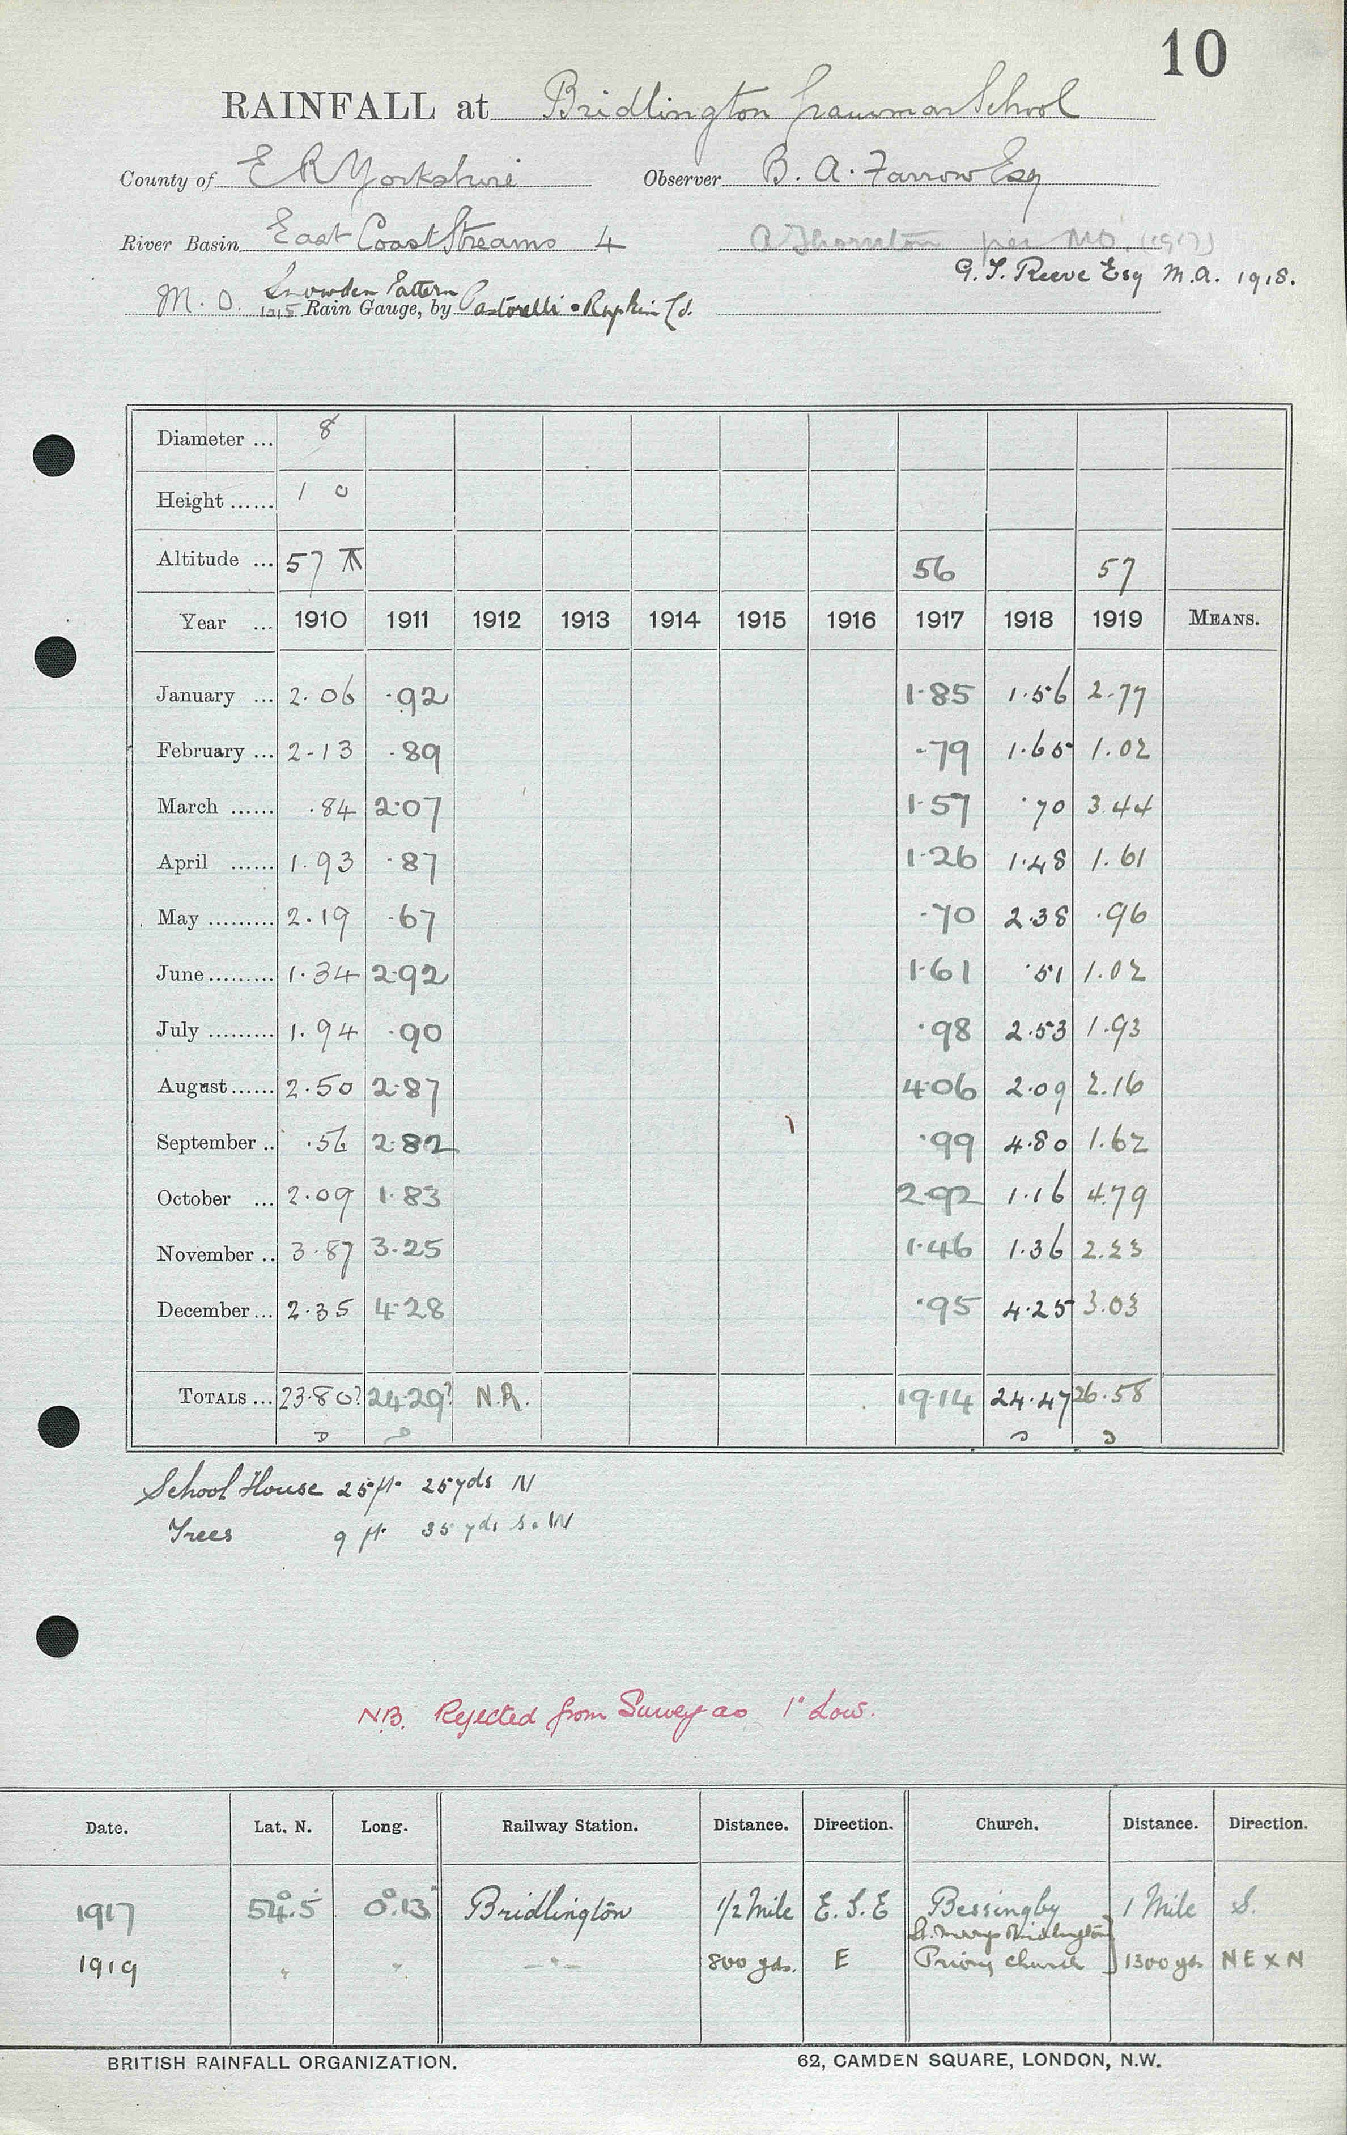 10
RAINFALL at Bridlington Grammar School
County of E R Yorkshire Observer B. A. Farrow Esq
River Basin East Coast Streams 4 A Thornton per M.O. (1917)
G. T. Reeve Esq M.A. 1918.
Snowden Pattern
M. O. 1215 Rain Gauge, by Pastorelli & Rapkin Ld.
Diameter ... 8
Height ...... 1 0
Altitude ... 57 56 57
Year ... 1910 1911 1912 1913 1914 1915 1916 1917 1918 1919 MEANS.
January ... 2.06 .92 1.85 1.56 2.77
February ... 2.13 .89 .79 1.65 1.02
March ...... .84 2.07 1.57 .70 3.44
April ...... 1.93 .87 1.26 1.48 1.61
May ......... 2.19 .67 .70 2.38 .96
June ......... 1.34 2.92 1.61 .51 1.02
July ......... 1.94 .90 .98 2.53 1.93
August ...... 2.50 2.87 4.06 2.09 2.16
September .. .56 2.82 .99 4.80 1.62
October ... 2.09 1.83 2.92 1.16 4.79
November .. 3.87 3.25 1.46 1.36 2.23
December ... 2.35 4.28 .95 4.25 3.03
TOTALS ... 23.80? 24.29? N.R. 19.14 24.47 26.58
School House 25 ft. 25 yds N
Trees 9 ft. 35 yds S.W
N.B. Rejected from Survey as 1" Low.
Date. Lat. N. Long. Railway Station. Distance. Direction. Church. Distance. Direction.
1917 54°.5' 0°.13' Bridlington 1/2 Mile E.S.E Bessingby 1 Mile S.
St. Marys Bridlington
1919 " " —"— 800 yds. E Priory Church 1300 yds N E x N
BRITISH RAINFALL ORGANIZATION. 62, CAMDEN SQUARE, LONDON, N.W.